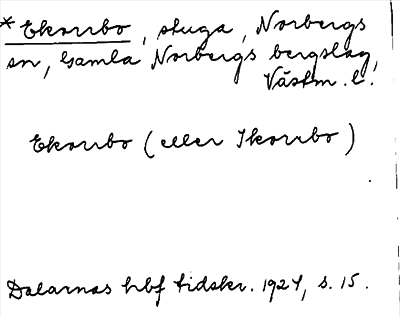 * Ekorrbo, stuga, Norbergs
sn, Gamla Norbergs bergslag,
Västm. l.
Ekorrbo (eller Ikorrbo)
Dalarnas hbf tidskr. 1924, s. 15.